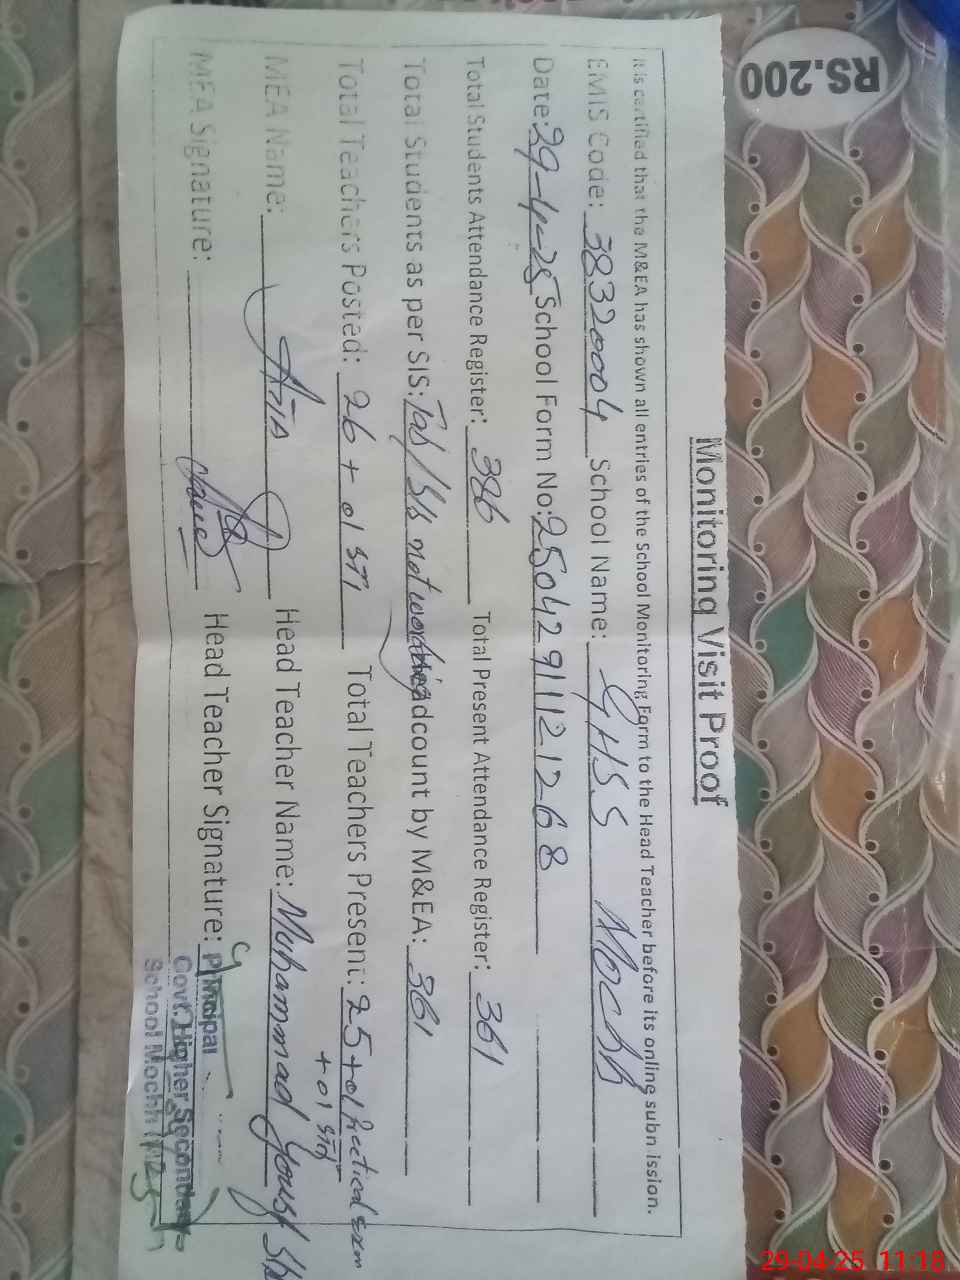 RS.200
Monitoring Visit Proof
It is certified that the M&EA has shown all entries of the School Monitoring Form to the Head Teacher before its online submission.
EMIS Code: 38320004 School Name: GHSS Mochh
Date: 29-4-25 School Form No: 2504291121268
Total Students Attendance Register: 386 Total Present Attendance Register: 361
Total Students as per SIS: Tab/SIS not working Headcount by M&EA: 361
Total Teachers Posted: 26 + 01 STI Total Teachers Present: 25 + 01 Practical Exam
+ 01 STI
MEA Name: Head Teacher Name: Muhammad Yousf
MEA Signature: Head Teacher Signature: Principal
Govt. Higher Secondary
School Mochh
29-04-25 11:18